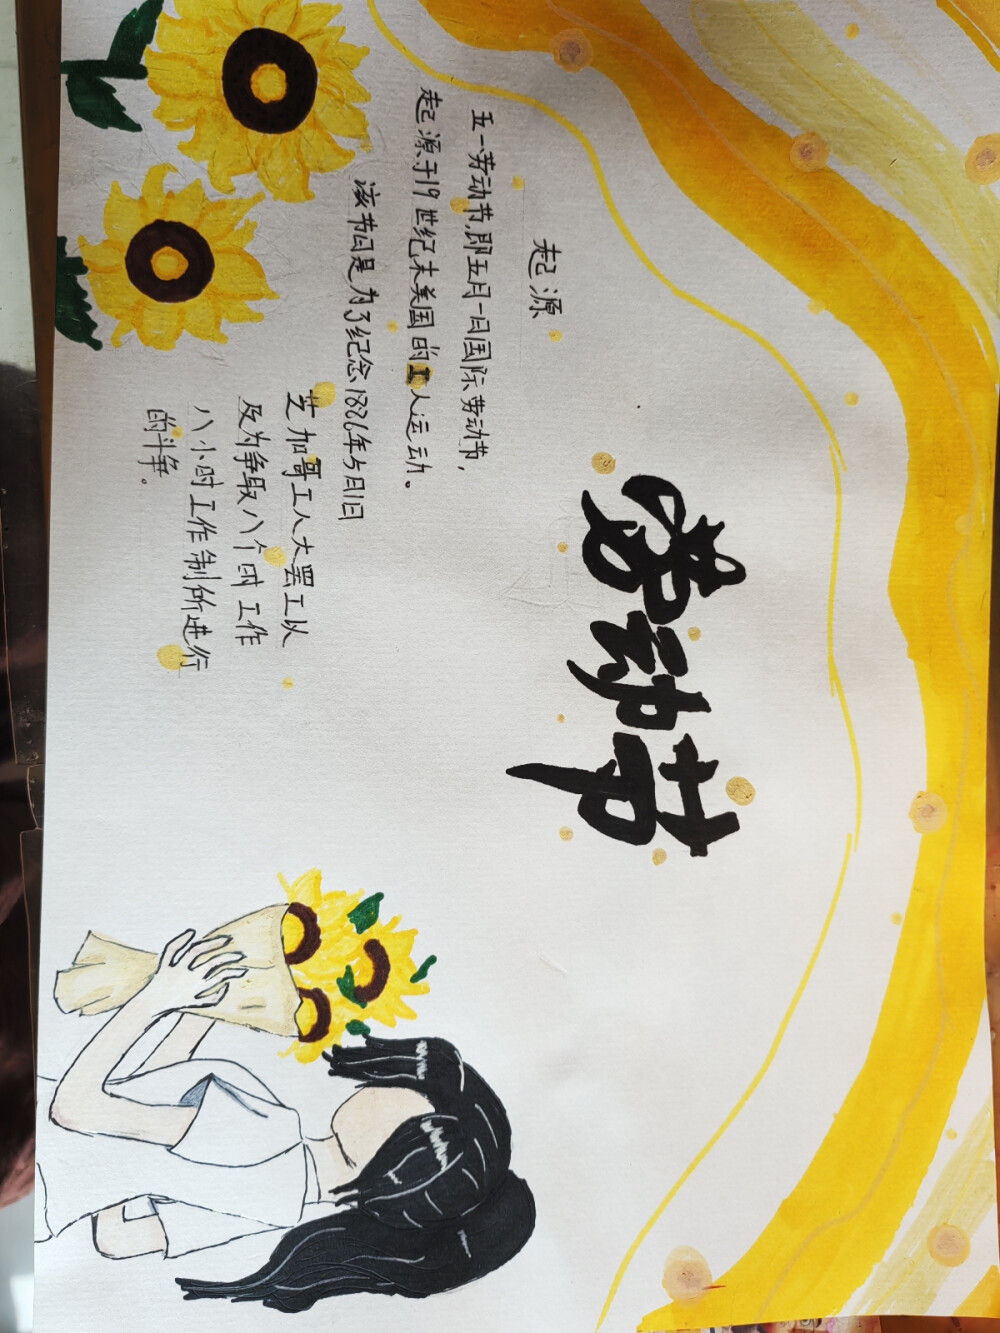 劳动节
起源
五一劳动节,即五月一日国际劳动节,
起源于19世纪末美国的工人运动。
该节日是为了纪念1886年5月1日
芝加哥工人大罢工以
及为争取八个时工作
八小时工作制所进行
的斗争。